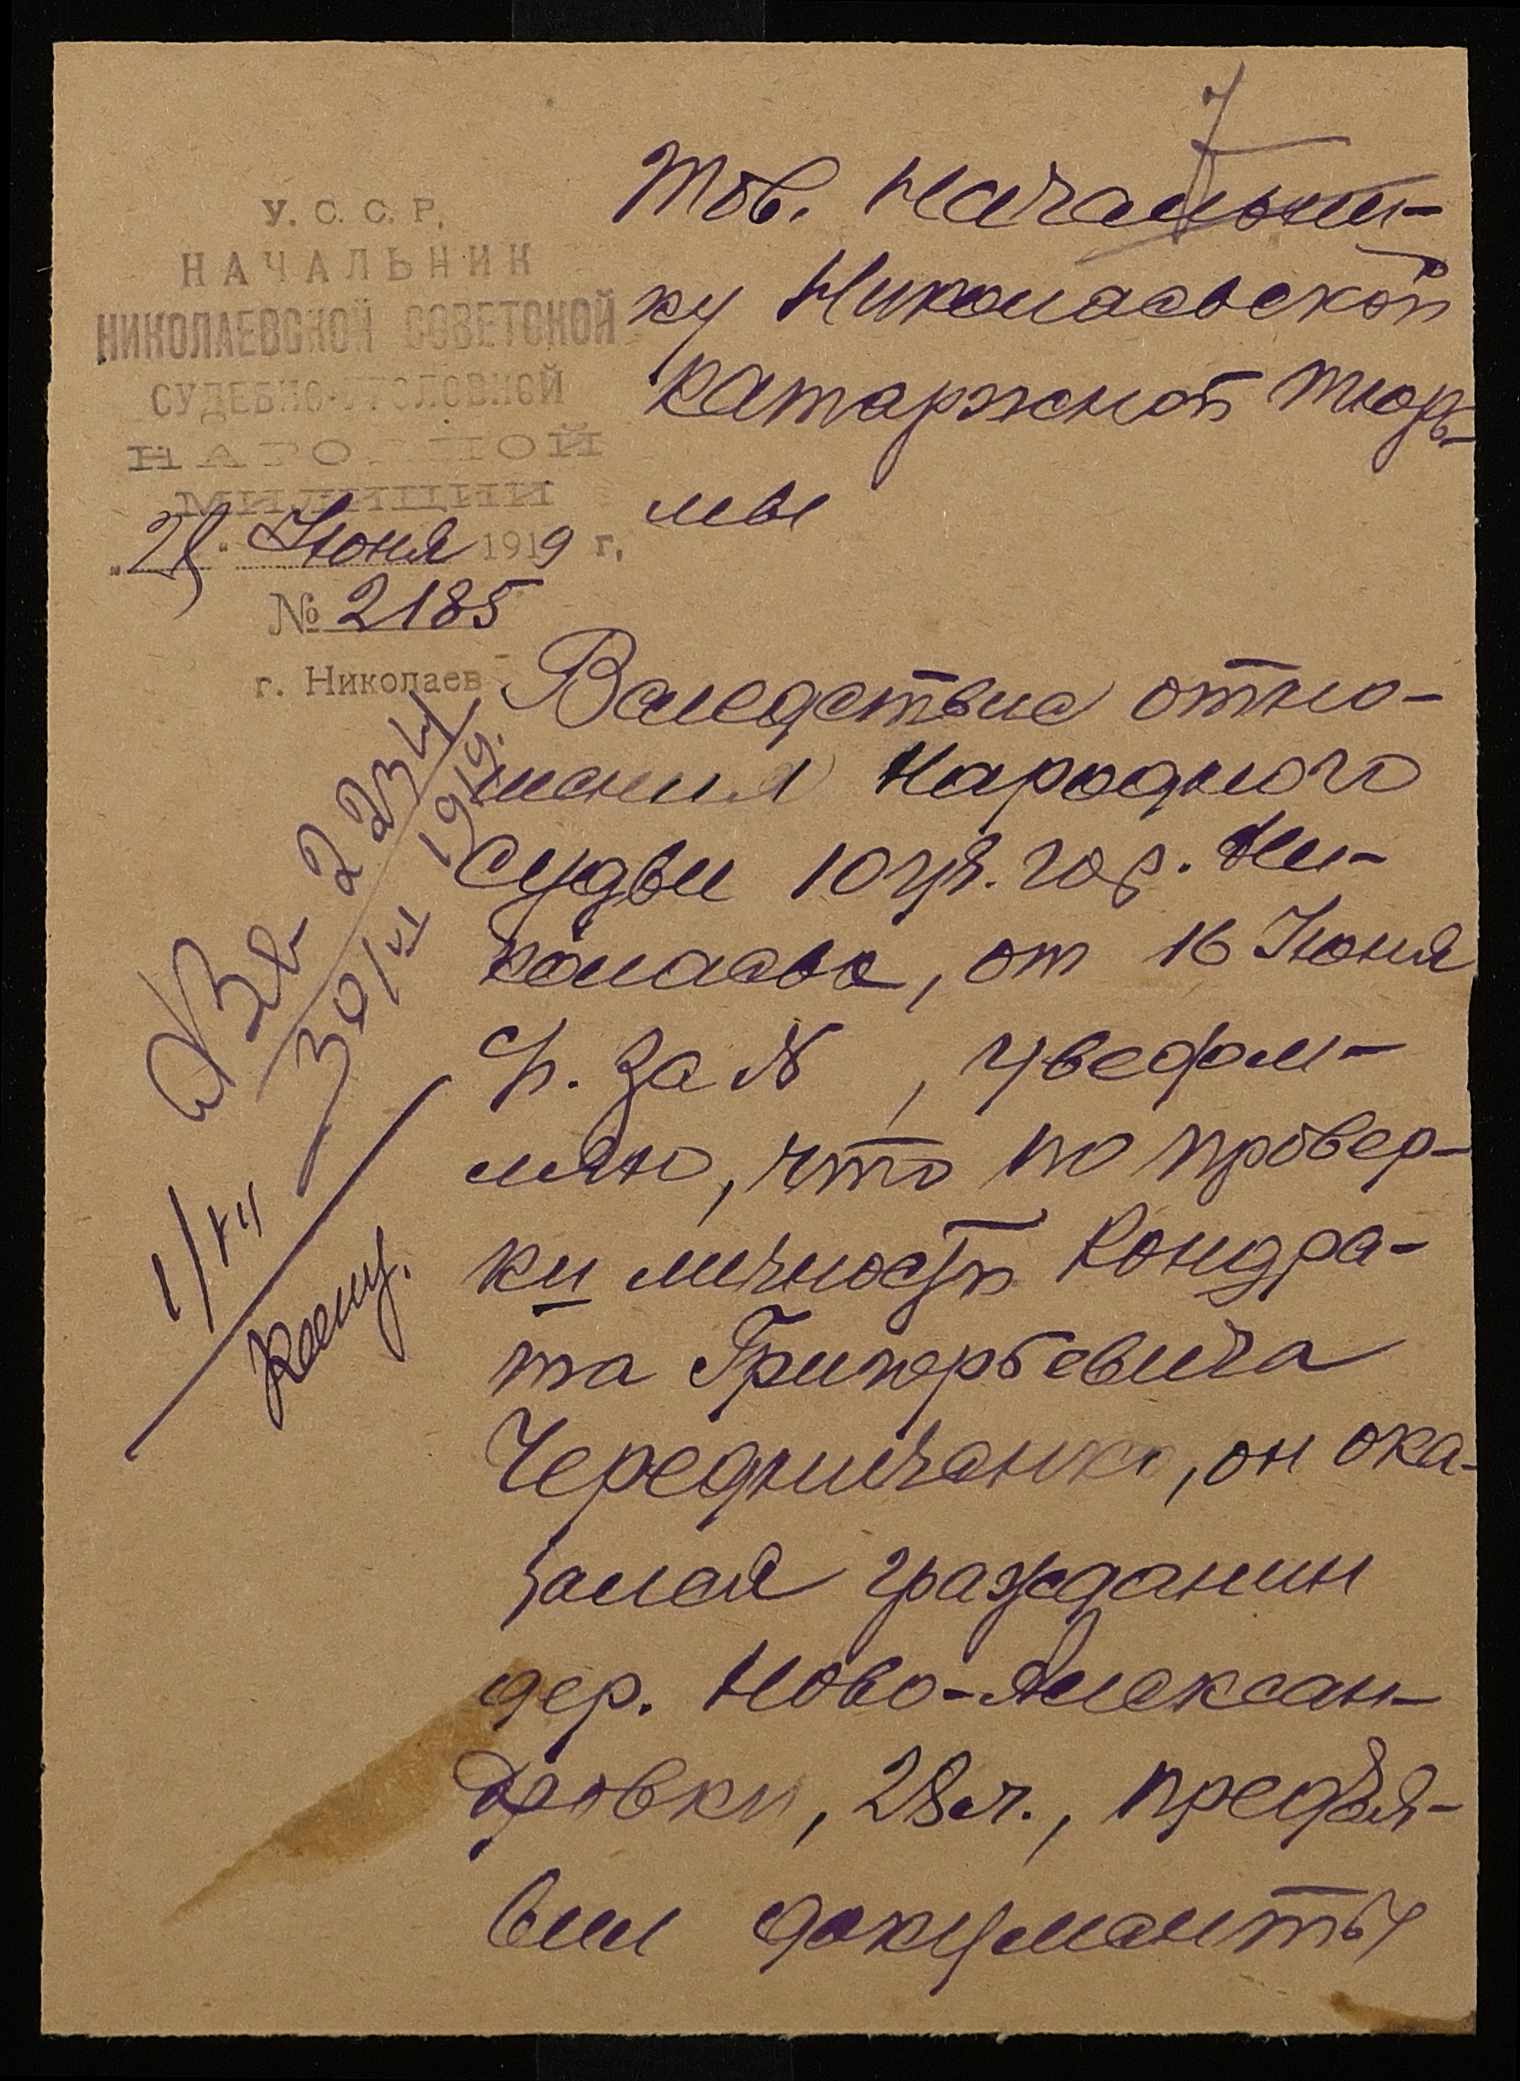 7
У. С. С. Р.
НАЧАЛЬНИК
НИКОЛАЕВСКОЙ СОВЕТСКОЙ
СУДЕБНО-УГОЛОВНОЙ
НАРОДНОЙ
МИЛИЦИИ
Июня 1919 г.
№ 2185
г. Николаев
Тов. Начальни-
ку Николаевской
катаржной тюрь-
мы
Вследствие отно-
шения Народного
Судьи 10 уч. гор. Ни-
колаева, от 16 Июня
с/г. за №   , уведом-
ляю, что по провер-
ки личности Кондра-
та Григорьевича
Чередниченко, он ока-
зался гражданин
дер. Ново-Алексан-
дровки, 28 л., предъя-
вил документы
2234
30/VI 1919.